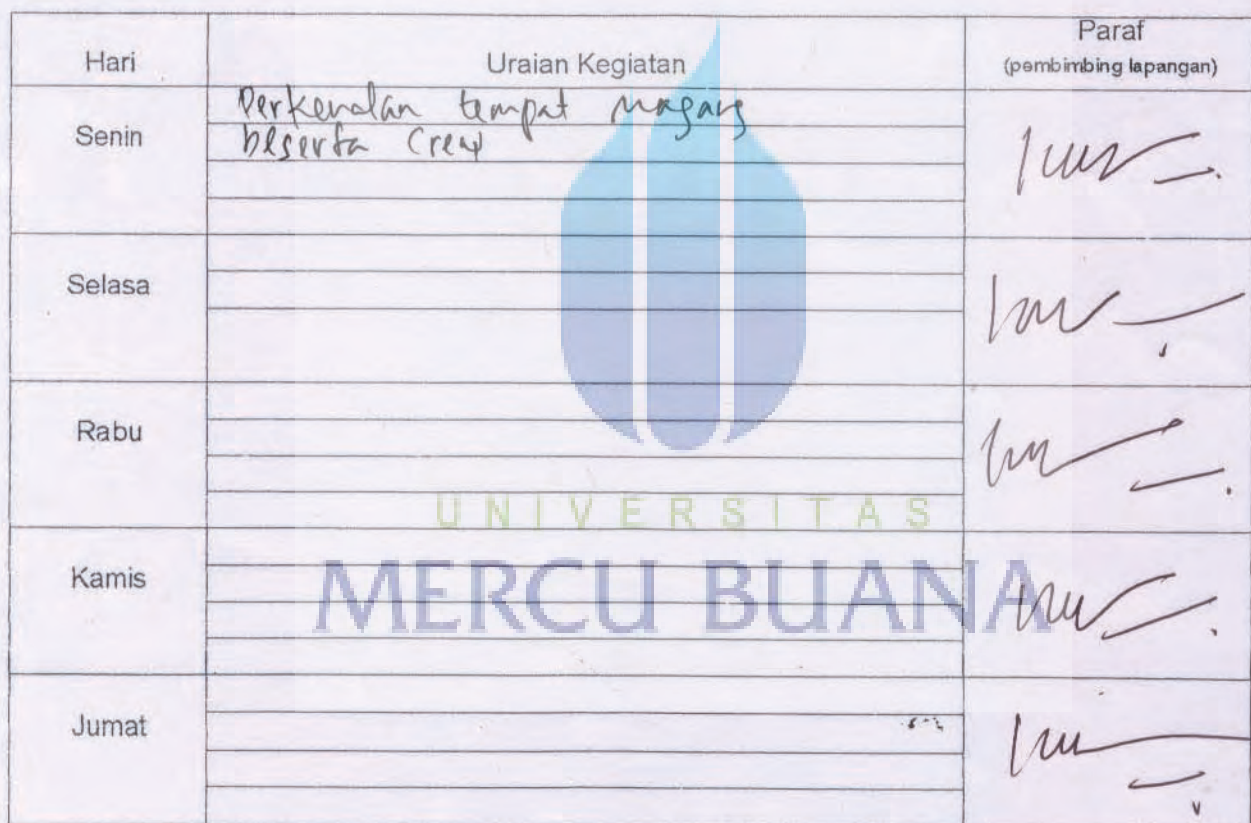 Hari Uraian Kegiatan Paraf
(pembimbing lapangan)
Senin
Perkenalan tempat magang
beserta Crew
Selasa
Rabu
UNIVERSITAS
Kamis
MERCU BUANA
Jumat